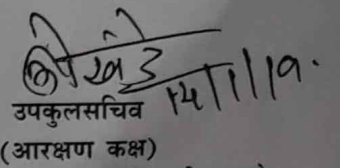 14/1/19.
उपकुलसचिव
(आरक्षण कक्ष)